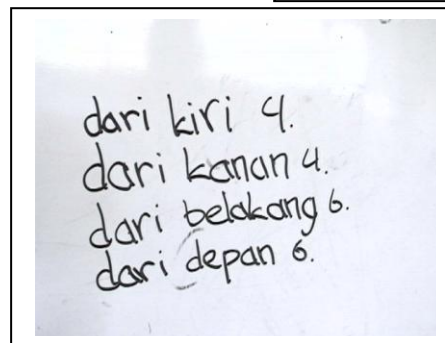 dari kiri 4.
dari kanan 4.
dari belakang 6.
dari depan 6.